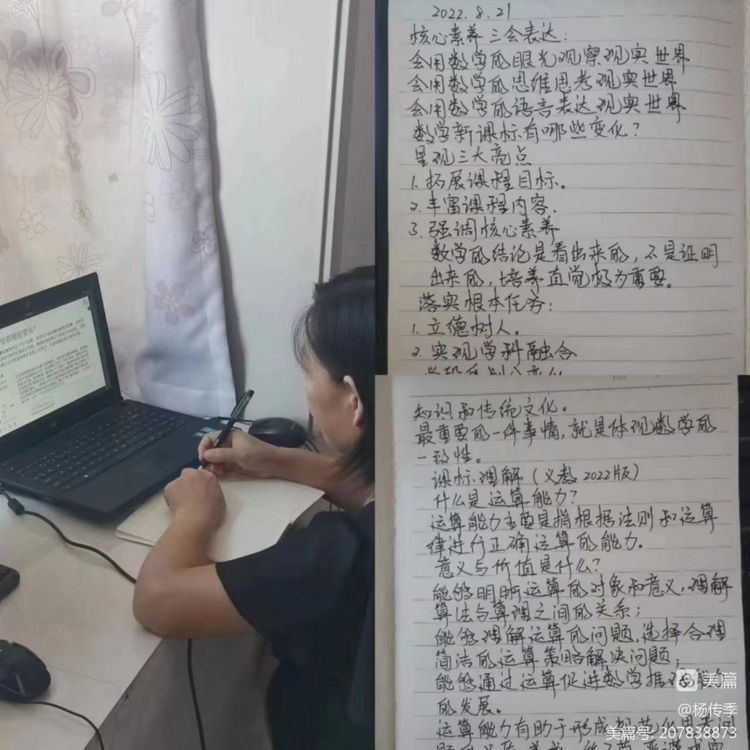 2022.8.21
核心素养 三会表达:
会用数学的眼光观察现实世界
会用数学的思维思考现实世界
会用数学的语言表达现实世界
数学新课标有哪些变化?
呈现三大亮点
1.拓展课程目标。
2.丰富课程内容.
3.强调核心素养
数学的结论是看出来的,不是证明
出来的,培养直觉极为重要。
落实根本任务:
1.立德树人。
2.实现学科融合
知识和传统文化。
最重要的一件事情,就是体现数学的
一致性。
课标理解(义教2022版)
什么是运算能力?
运算能力主要是指根据法则和运算
律进行正确运算的能力.
意义与价值是什么?
能够明晰运算的对象和意义,理解
算法与算理之间的关系;
能够理解运算的问题,选择合理
简洁的运算策略解决问题;
能够通过运算促进数学推理能力
的发展。
运算能力有助于形成规范化思考问
美篇
@杨传季
美篇号:207838873